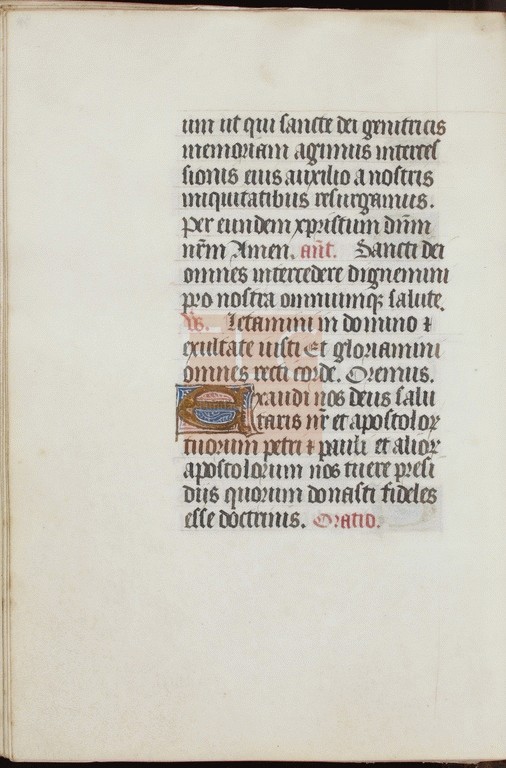 um ut qui sancte dei genitricis
memoriam agimus interces
sionis eius auxilio a nostris
iniquitatibus resurgamus.
Per eundem xpristum dn̄m
nr̄m Amen. an̄t. Sancti dei
omnes intercedere dignemini
pro nostra omniumqꝫ salute.
Vs. Letamini in domino ⁊
exultate iusti Et gloriamini
omnes recti corde. Oremus.
Exaudi nos deus salu
taris nr̄ et apostoloꝝ
tuorum petri ⁊ pauli et alioꝝ
apostolorum nos tuere presi
diis quorum donasti fideles
esse doctrinis. Oratio.